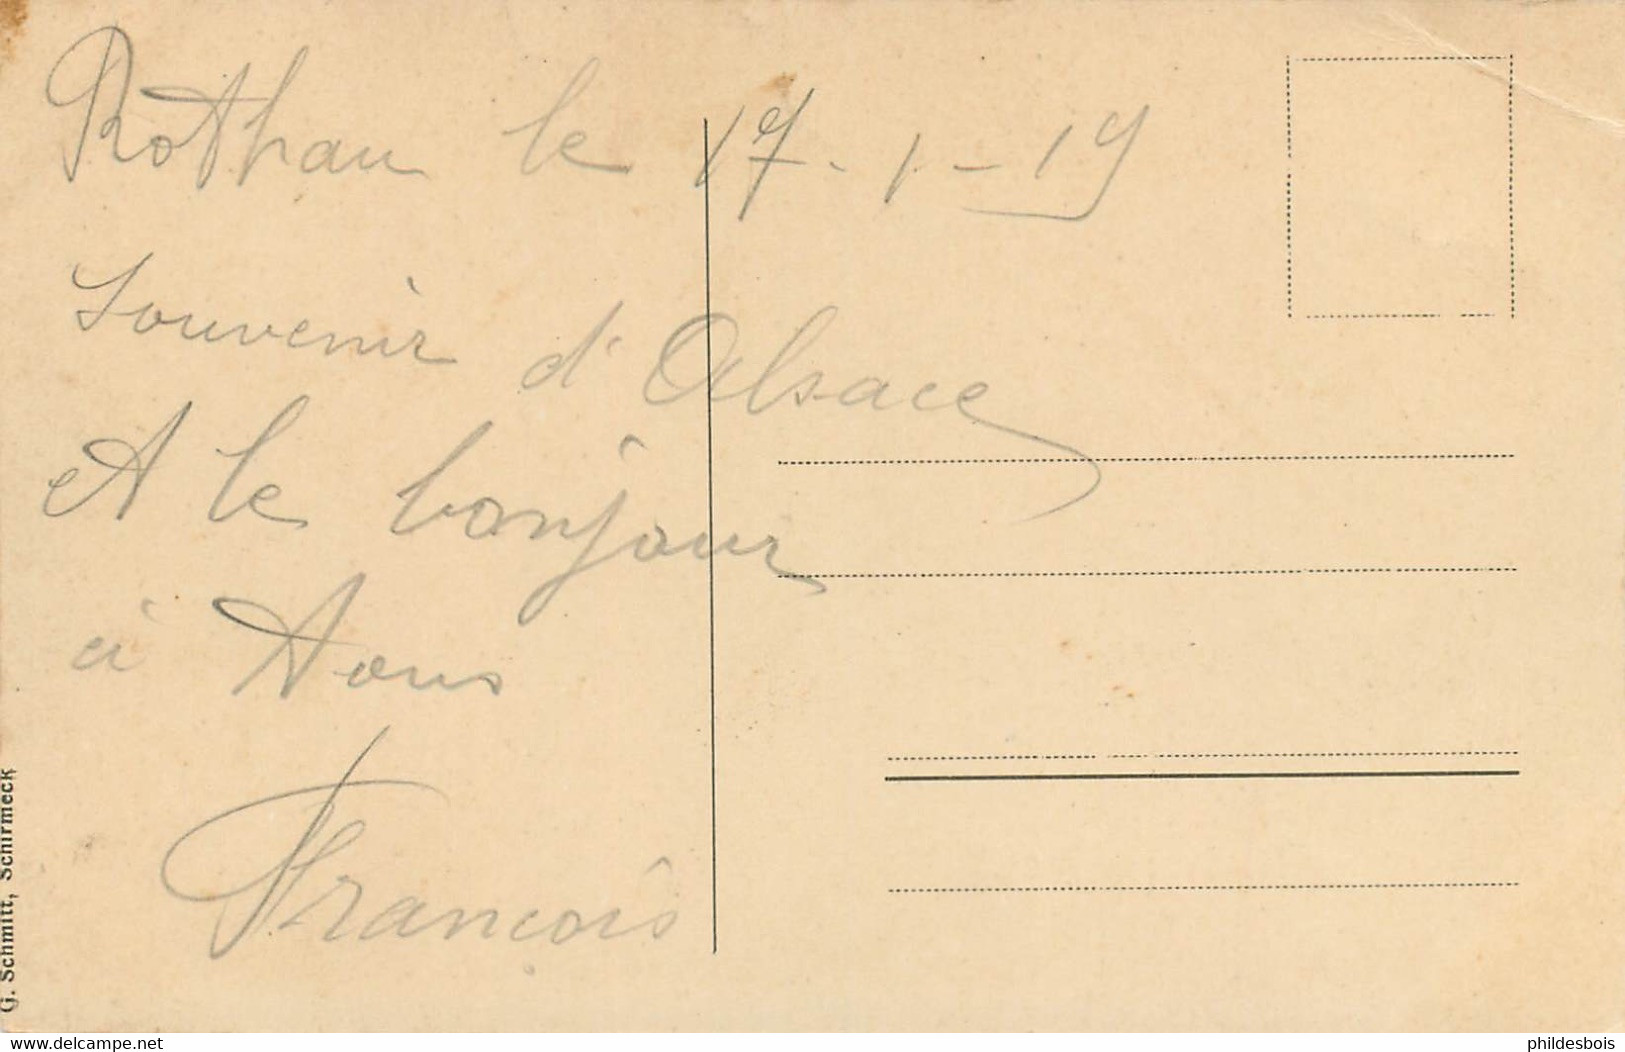 Rothau le 17-1-19
Souvenir d'Alsace
et le bonjour
à tous
François
G. Schmitt, Schirmeck
www.delcampe.net
phildesbois